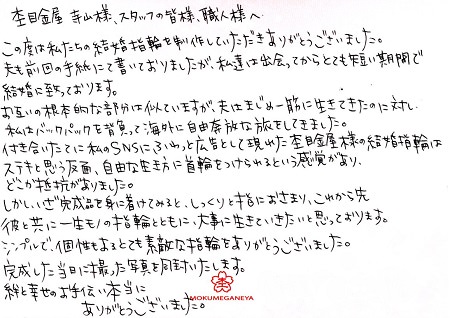 杢目金屋 寺山様、スタッフの皆様、職人様へ
この度は私たちの結婚指輪を制作していただきありがとうございました。
夫も前回の手紙にて書いておりましたが、私達は出会ってからとても短い期間で
結婚に至っております。
お互いの根本的な部分は似ていますが、夫はまじめ一筋に生きてきたのに対し、
私はバックパックを背負って海外に自由奔放な旅をしてきました。
付き合いたてに私のSNSにふわっと広告として現れた杢目金屋様の結婚指輪は
ステキと思う反面、自由な生き方に首輪をつけられるという感覚があり、
どこか抵抗がありました。
しかしいざ完成品を身に着けてみると、しっくりと指におさまり、これから先
彼と共に一生モノの指輪とともに、大事に生きていきたいと思っております。
シンプルで、個性もあるとても素敵な指輪をありがとうございました。
完成した当日に撮った写真を同封いたします。
絆と幸せのお手伝い本当に
ありがとうございました。
MOKUMEGANEYA